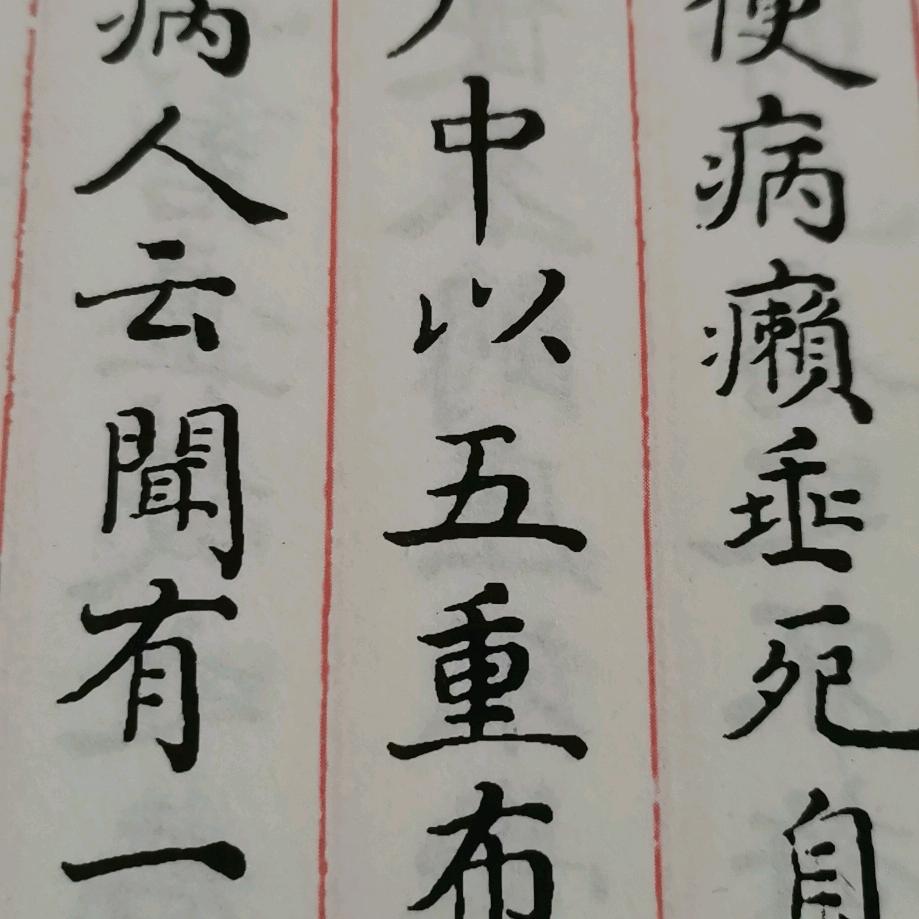 便病癩垂死自
中以五重布
病人云聞有一